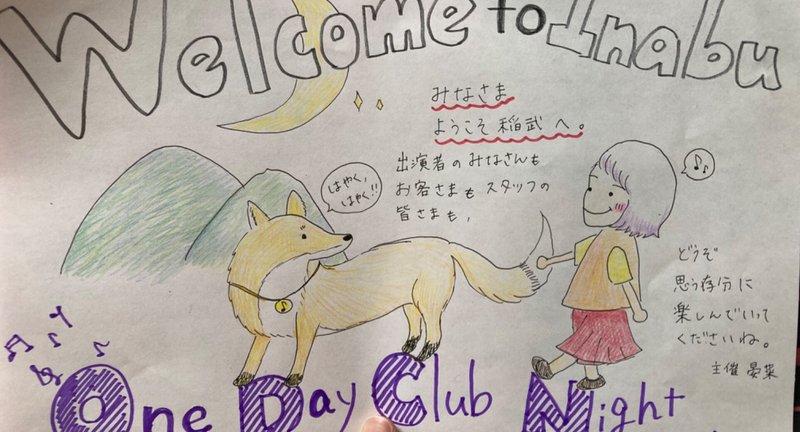 Welcome to Inabu
みなさま
ようこそ稲武へ。
出演者のみなさんも
お客さまもスタッフの
皆さまも,
はやく,
はやく!!
どうぞ
思う存分に
楽しんでいって
くださいね。
主催 晏菜
One Day Club Night